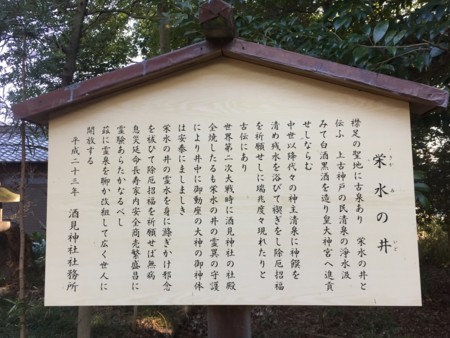 栄水の井
標足の聖地に古泉あり　栄水の井と
伝ふ　上古神戸の民清泉の浄水汲
みて白酒黒酒を造り皇大神宮へ進貢
せしならむ
中世以降代々の神主清泉に神饌を
清め残水を浴びて禊ぎをし除厄招福
を祈願せしに瑞兆度々現れたりと
古伝にあり
世界第二次大戦時に酒見神社の社殿
全焼したるも栄水の井の霊異の守護
により井中に御動座の大神の御神体
は安泰にましましき
栄水の井の霊水を身に滌ぎかけ邪念
を祓ひて除厄招福を祈願せば無病
息災延命長寿家内安全商売繁盛に
霊験あらたかなるべし
茲に霊泉を聊か改組して広く世人に
開放する
平成二十三年　酒見神社社務所